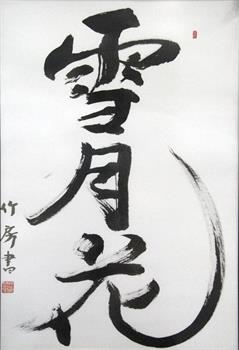 雪月花
竹房書